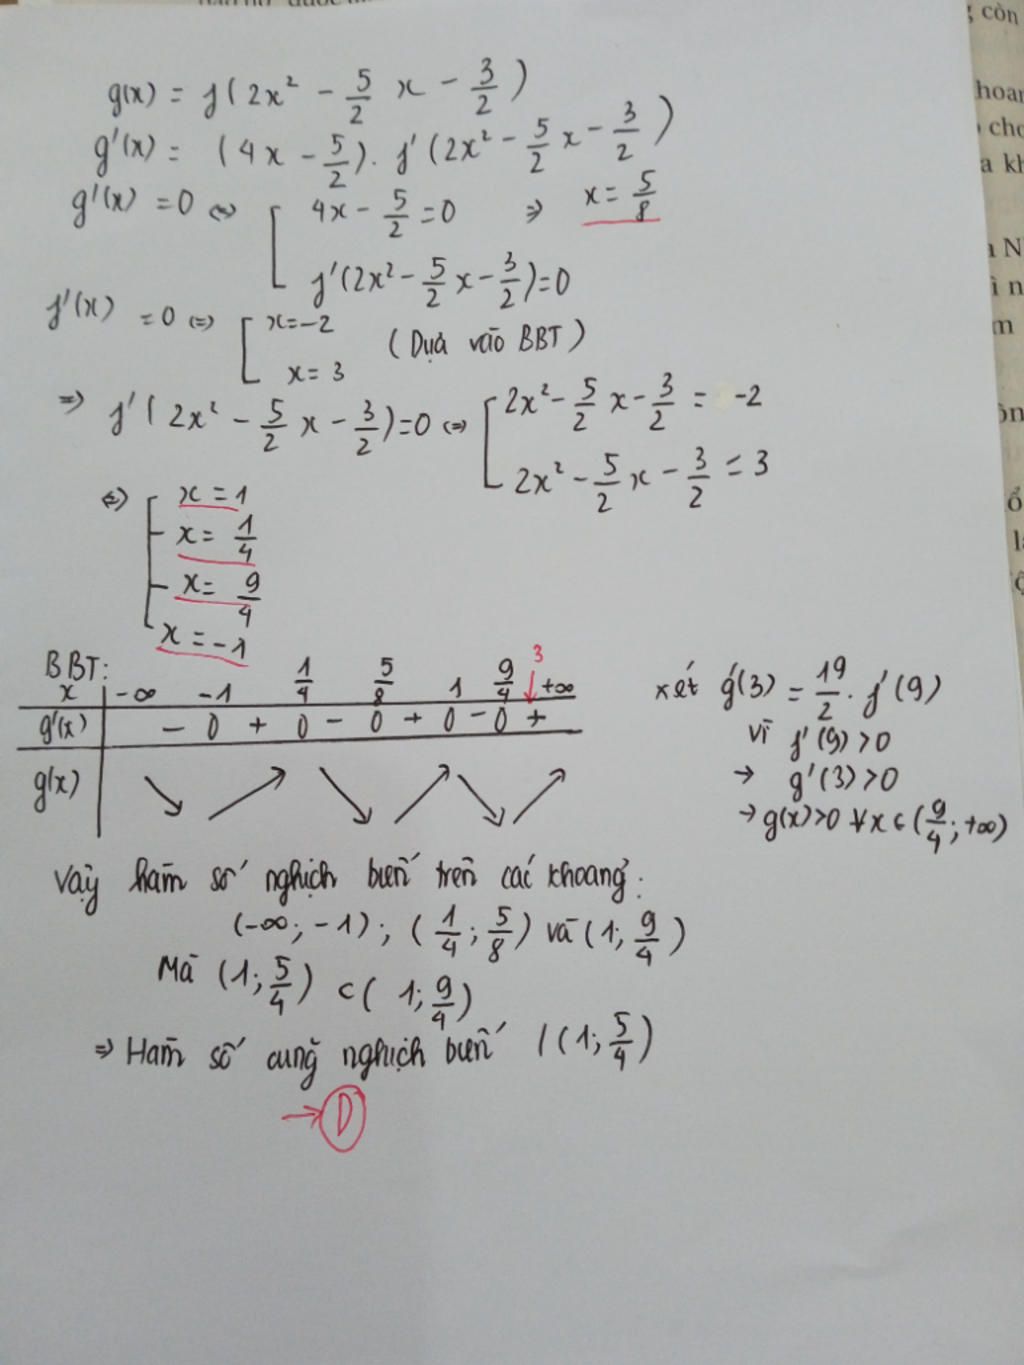 g(x) = f(2x² - 5/2 x - 3/2)
g'(x) = (4x - 5/2). f'(2x² - 5/2 x - 3/2)
g'(x) = 0 ⇔ [ 4x - 5/2 = 0 ⇒ x = 5/8
f'(2x² - 5/2 x - 3/2) = 0
f'(x) = 0 ⇔ [ x = -2
x = 3 (Dựa vào BBT)
⇒ f'(2x² - 5/2 x - 3/2) = 0 ⇔ [ 2x² - 5/2 x - 3/2 = -2
2x² - 5/2 x - 3/2 = 3
⇔ [ x = 1
x = 1/4
x = 9/4
x = -1
BBT:
3
x | -∞ -1 1/4 5/8 1 9/4 +∞
g'(x) | - 0 + 0 - 0 + 0 - 0 +
g(x) | ↘ ↗ ↘ ↗ ↘ ↗
xét g'(3) = 19/2 . f'(9)
vì f'(9) > 0
→ g'(3) > 0
→ g(x) > 0 ∀x ∈ (9/4; +∞)
Vậy hàm số nghịch biến trên các khoảng:
(-∞; -1); (1/4; 5/8) và (1; 9/4)
Mà (1; 5/4) ⊂ (1; 9/4)
⇒ Hàm số cũng nghịch biến / (1; 5/4)
→ D
còn